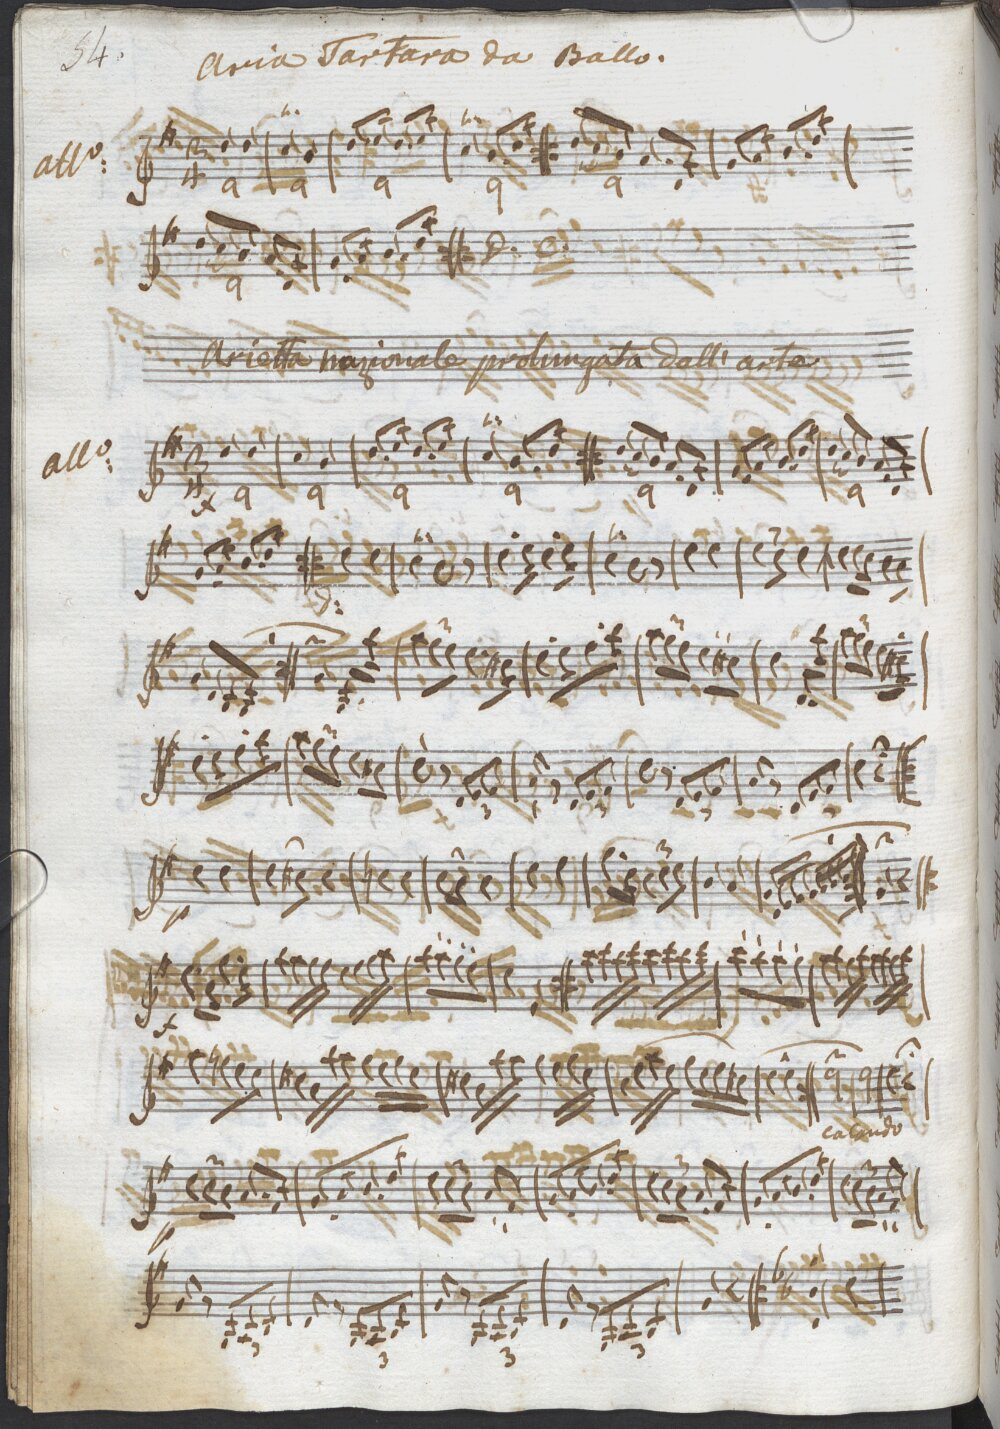 54.
Aria Tartara da Ballo.
all.º:
Arietta nazionale prolungata dall' arte
all.º:
calando